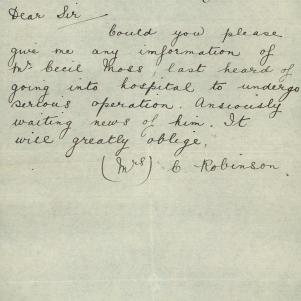 Dear Sir
Could you please
give me any imformation of
Mr Cecil Moss last heard of
going into hospital to undergo
serious operation. Ansciously
waiting news of him. It
will greatly oblige.
(Mrs) C Robinson.